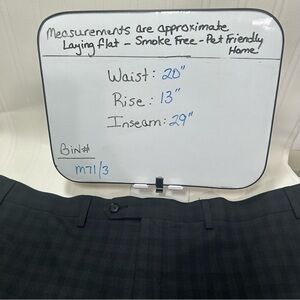 Measurements are approximate
Laying flat - Smoke Free - Pet Friendly
Home
Waist: 20"
Rise: 13"
Inseam: 29"
Bin#
M71/3